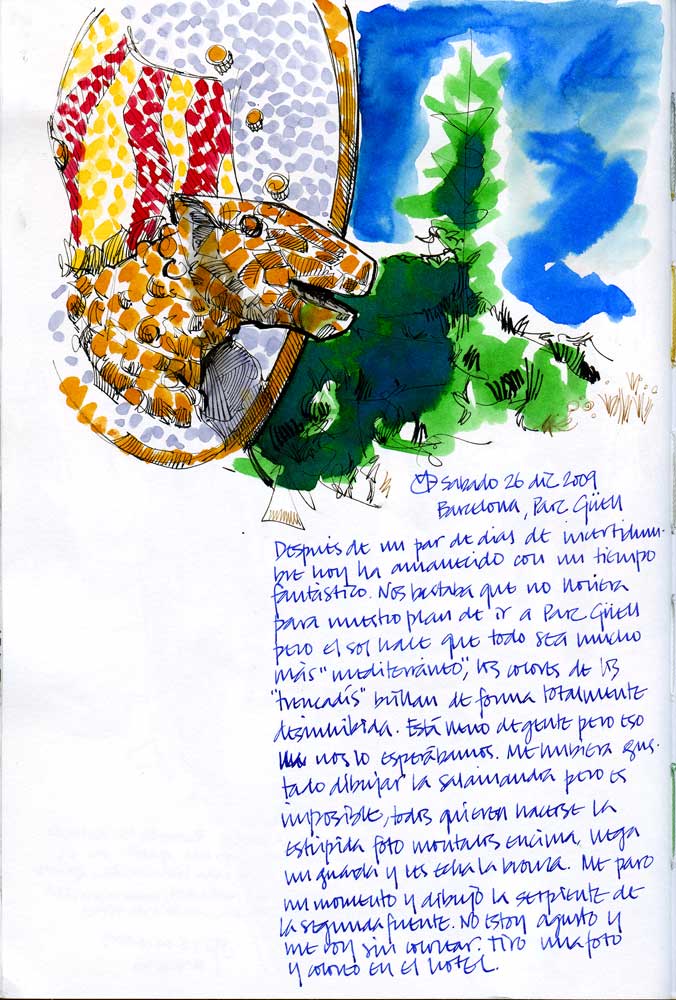 sabado 26 dic 2009
Barcelona, Parc Güell
Después de un par de dias de incertidum-
bre hoy ha amanecido con un tiempo
fantástico. Nos bastaba que no lloviera
para nuestro plan de ir a Parc Güell
pero el sol hace que todo sea mucho
más "mediterráneo", los colores de los
"trencadís" brillan de forma totalmente
desinhibida. Está lleno de gente pero eso
nos lo esperábamos. Me hubiera gus-
tado dibujar la salamandra pero es
imposible, todos quieren hacerse la
estúpida foto montados encima, llega
un guarda y les echa la bronca. Me paro
un momento y dibujo la serpiente de
la segunda fuente. No estoy agusto y
me voy sin colorear. Tiro una foto
y coloreo en el hotel.